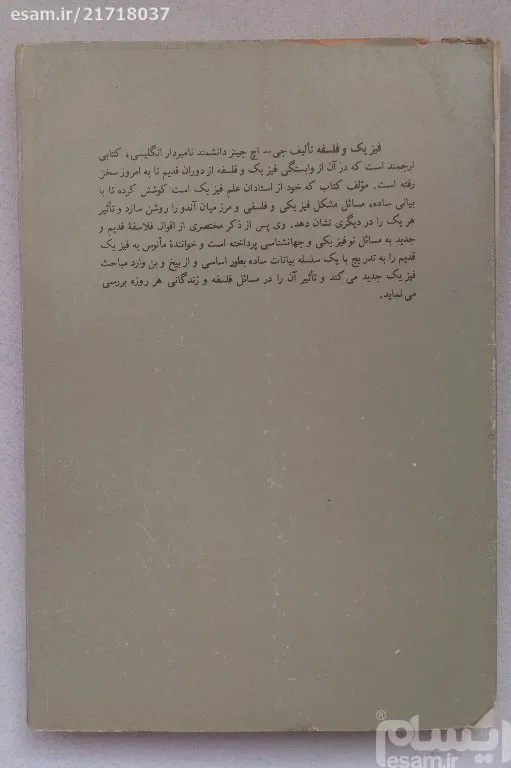 esam.ir/21718037
فیزیک و فلسفه تألیف جی- اچ جینز دانشمند نامبردار انگلیسی، کتابی
ارجمند است که در آن از وابستگی فیزیک و فلسفه از دوران قدیم تا به امروز سخن
رفته است. مؤلف کتاب که خود از استادان علم فیزیک است کوشش کرده تا با
بیانی ساده، مسائل مشکل فیزیکی و فلسفی و مرز میان آندو را روشن سازد و تأثیر
هر یک را در دیگری نشان دهد. وی پس از ذکر مختصری از اقوال فلاسفهٔ قدیم و
جدید به مسائل نو فیزیکی و جهانشناسی پرداخته است و خوانندهٔ مأنوس به فیزیک
قدیم را به تدریج با یک سلسله بیانات ساده بطور اساسی و از بیخ و بن وارد مباحث
فیزیک جدید می کند و تأثیر آن را در مسائل فلسفه و زندگانی هر روزه بررسی
می نماید.
ایسام®
esam.ir